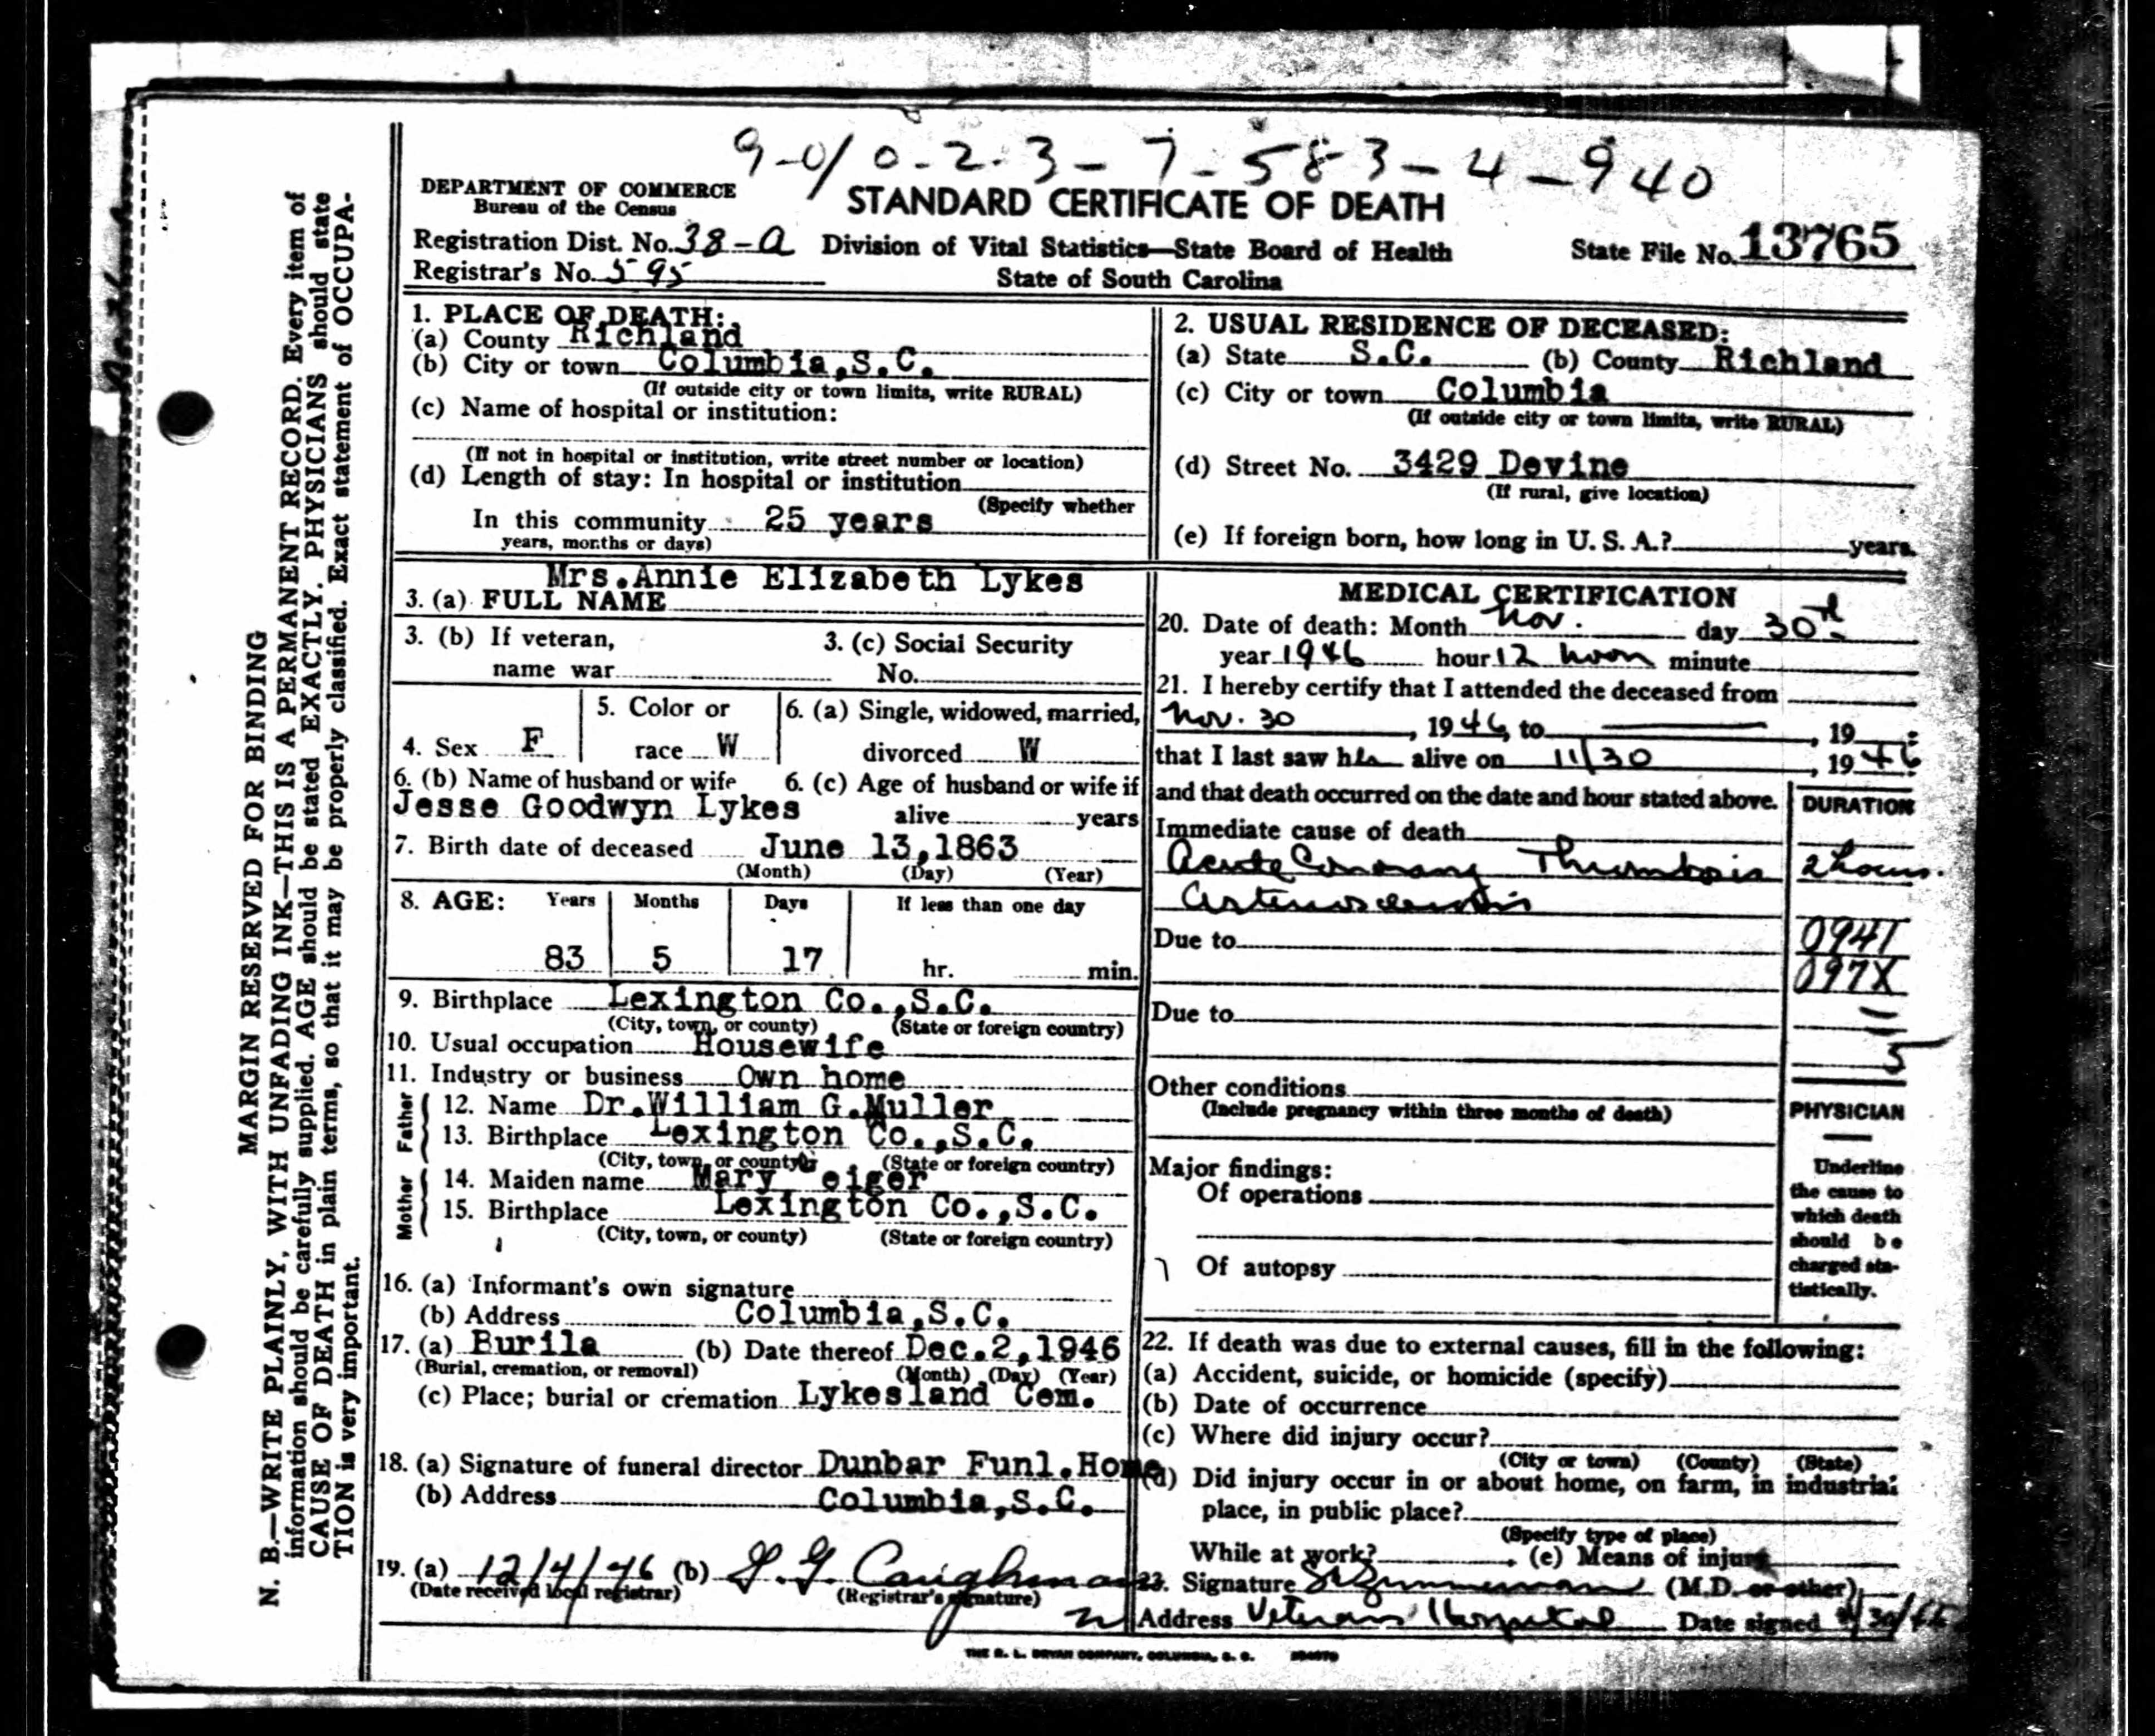 9-0/0-2-3-7-583-4-940
DEPARTMENT OF COMMERCE
Bureau of the Census
STANDARD CERTIFICATE OF DEATH
Registration Dist. No. 38-a Division of Vital Statistics—State Board of Health State File No. 13765
Registrar's No. 595 State of South Carolina
MARGIN RESERVED FOR BINDING
N. B.—WRITE PLAINLY, WITH UNFADING INK—THIS IS A PERMANENT RECORD. Every item of
information should be carefully supplied. AGE should be stated EXACTLY. PHYSICIANS should state
CAUSE OF DEATH in plain terms, so that it may be properly classified. Exact statement of OCCUPA-
TION is very important.
1. PLACE OF DEATH:
(a) County Richland
(b) City or town Columbia,S.C.
(If outside city or town limits, write RURAL)
(c) Name of hospital or institution:
(If not in hospital or institution, write street number or location)
(d) Length of stay: In hospital or institution
(Specify whether
In this community 25 years
years, months or days)
2. USUAL RESIDENCE OF DECEASED:
(a) State S.C. (b) County Richland
(c) City or town Columbia
(If outside city or town limits, write RURAL)
(d) Street No. 3429 Devine
(If rural, give location)
(e) If foreign born, how long in U. S. A.? years.
Mrs.Annie Elizabeth Lykes
3. (a) FULL NAME
3. (b) If veteran, 3. (c) Social Security
name war No.
5. Color or 6. (a) Single, widowed, married,
4. Sex F race W divorced W
6. (b) Name of husband or wife 6. (c) Age of husband or wife if
Jesse Goodwyn Lykes alive years
7. Birth date of deceased June 13,1863
(Month) (Day) (Year)
8. AGE: Years Months Days If less than one day
83 5 17 hr. min.
9. Birthplace Lexington Co.,S.C.
(City, town, or county) (State or foreign country)
10. Usual occupation Housewife
11. Industry or business Own home
Father
12. Name Dr.William G.Muller
13. Birthplace Lexington Co.,S.C.
(City, town, or county) (State or foreign country)
Mother
14. Maiden name Mary eiger
15. Birthplace Lexington Co.,S.C.
(City, town, or county) (State or foreign country)
16. (a) Informant's own signature
(b) Address Columbia,S.C.
17. (a) Burila (b) Date thereof Dec.2,1946
(Burial, cremation, or removal) (Month) (Day) (Year)
(c) Place; burial or cremation Lykesland Cem.
18. (a) Signature of funeral director Dunbar Funl.Home
(b) Address Columbia,S.C.
19. (a) 12/4/46 (b) Caughman
(Date received local registrar) (Registrar's signature)
MEDICAL CERTIFICATION
20. Date of death: Month Nov. day 30th
year 1946 hour 12 noon minute
21. I hereby certify that I attended the deceased from
Nov. 30, 1946, to ———, 19
that I last saw her alive on 11/30, 1946
and that death occurred on the date and hour stated above. DURATION
Immediate cause of death
Acute Coronary Thrombosis 2 hours.
Arteriosclerosis
Due to 094I
097X
Due to
5
Other conditions
(Include pregnancy within three months of death)
PHYSICIAN
Major findings:
Of operations
Of autopsy
Underline
the cause to
which death
should be
charged sta-
tistically.
22. If death was due to external causes, fill in the following:
(a) Accident, suicide, or homicide (specify)
(b) Date of occurrence
(c) Where did injury occur?
(City or town) (County) (State)
(d) Did injury occur in or about home, on farm, in industrial
place, in public place?
(Specify type of place)
While at work? (e) Means of injury
23. Signature Zimmerman (M.D. or other)
Address Veterans Hospital Date signed 11/30/46
THE R. L. BRYAN COMPANY, COLUMBIA, S. C.